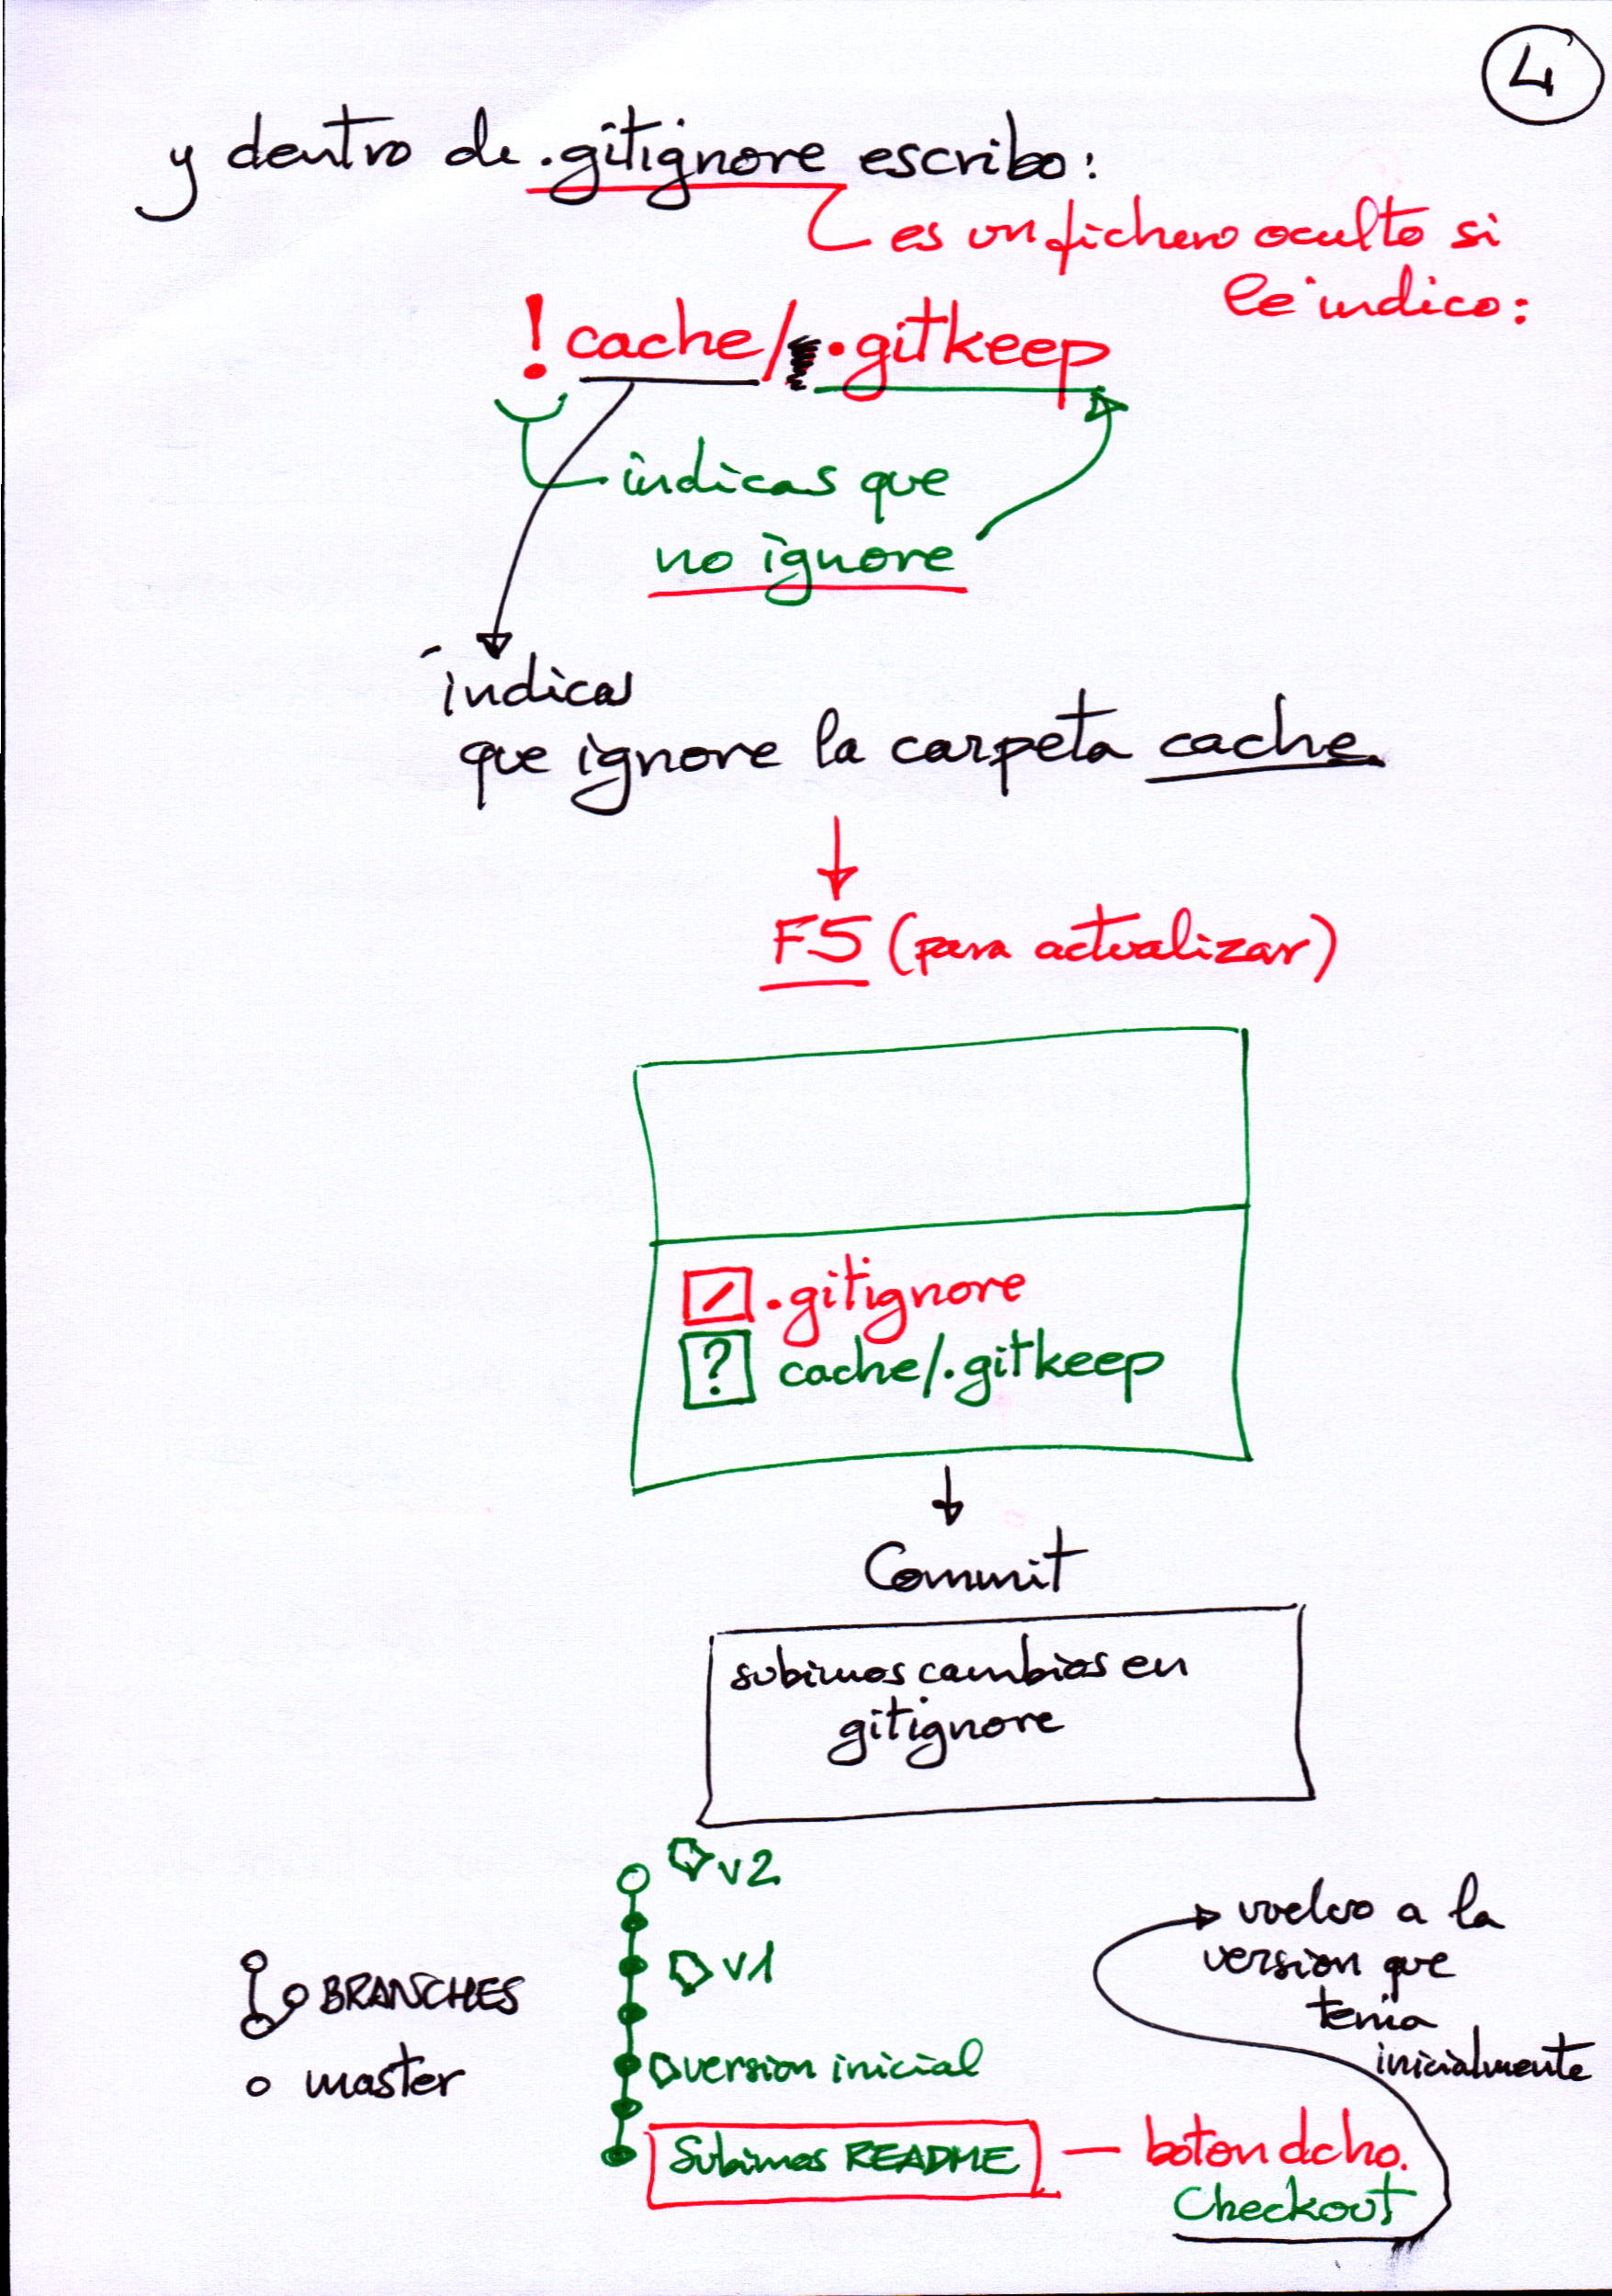 4
y dentro de .gitignore escribo:
es un fichero oculto si
le indico:
! cache/ .gitkeep
indicas que
no ignore
indicas
que ignore la carpeta cache.
F5 (para actualizar)
.gitignore
? cache/.gitkeep
Commit
subimos cambios en
gitignore
v2
v1
BRANCHES
master
version inicial
Subimos README
boton dcho.
Checkout
vuelvo a la
version que
tenia
inicialmente